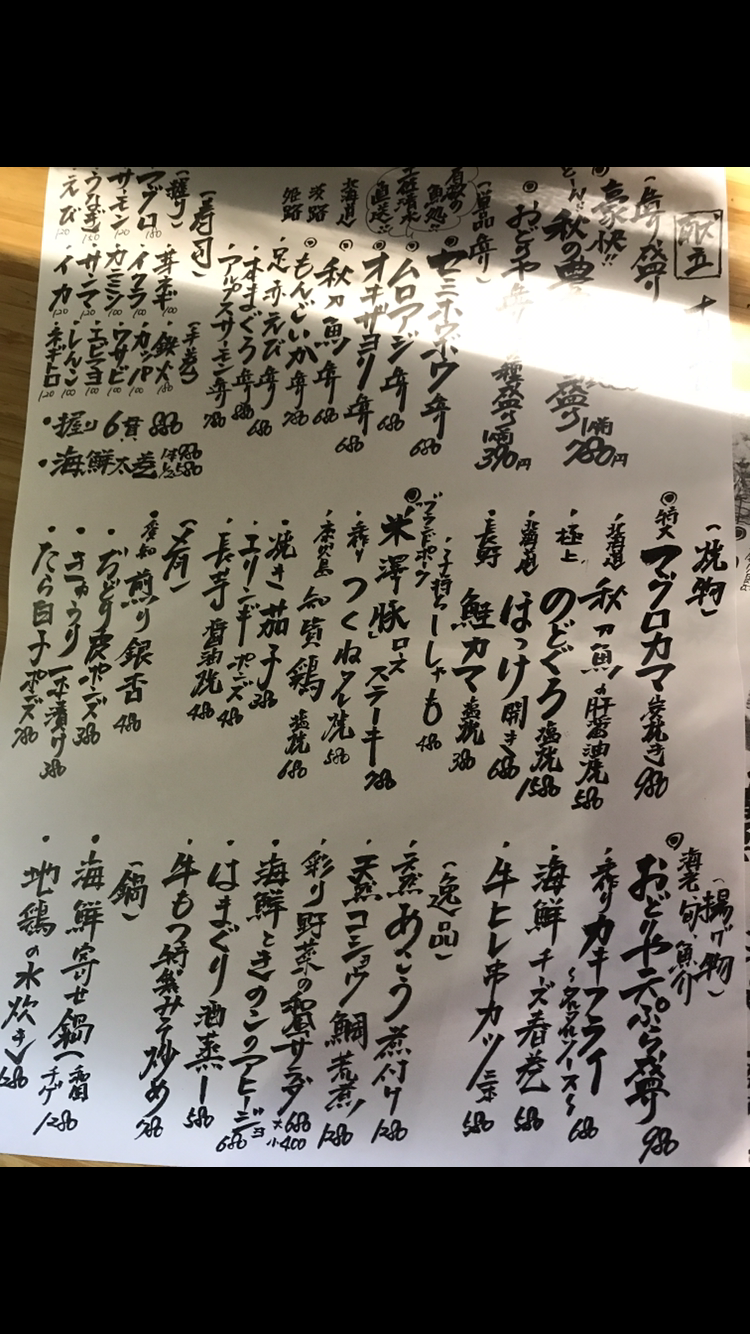 献立
(造り盛り)
◎豪快!!
秋の
盛り 1人前 780円
◎おどりや
種盛り 1人前 390円
(単品造り)
直送!!
・セミホウボウ造 680
・ムロアジ造 680
・オキザヨリ造 680
北海道 ◎秋刀魚造 680
淡路 ◎もんごいか造 780
姫路 ・足赤えび造 680
・本まぐろ造 880
・アルプスサーモン造 780
(寿司)
(握り)
・マグロ 180
・サーモン 120
・うなぎ 100
・えび 120
・芽ネギ 100
・イクラ 100
・カニミソ 100
・サンマ 100
・イカ 120
(手巻)
・鉄火 180
・カッパ 100
・ウサビ 100
・エビマヨ 100
・しんこ 100
・ネギトロ 120
・握り6貫 880
・海鮮太巻 1本 980 1/2 580
(焼物)
◎特大 マグロカマ 炭焼き 980
・北海道 秋刀魚の肝醤油焼 580
・極上 のどぐろ 塩焼 1580
・北海道 ほっけ 開き 680
・長野 鮭カマ 塩焼 380
・子持ちししゃも 480
◎ブランドポーク 米澤豚ロースステーキ 780
・手作り つくねタレ焼 580
・鹿児島 知覧鶏 塩焼 680
・焼き茄子 380
・エリンギポンズ 480
・長芋 醤油焼 480
(肴)
・愛知 煎り銀杏 480
・ぢどり皮ポンズ 380
・きゅうり一本漬け 380
・たら白子ポンズ 780
(揚げ物)
海老・旬・魚介
◎おどりや天ぷら盛 980
・手作りカキフライ 〜タルタルソース〜 680
・海鮮チーズ春巻 580
・牛ヒレ串カツ 二本 580
(逸品)
・天然あこう煮付け 1280
・天然コショウ鯛荒煮 1280
・彩り野菜の和風サラダ 大680 小400
・海鮮ときのこのアヒージョ 680
・はまぐり酒蒸し 580
・牛もつ特製みそ炒め 780
(鍋)
・海鮮寄せ鍋 (和風 チゲ) 1280
・地鶏の水炊き 1280